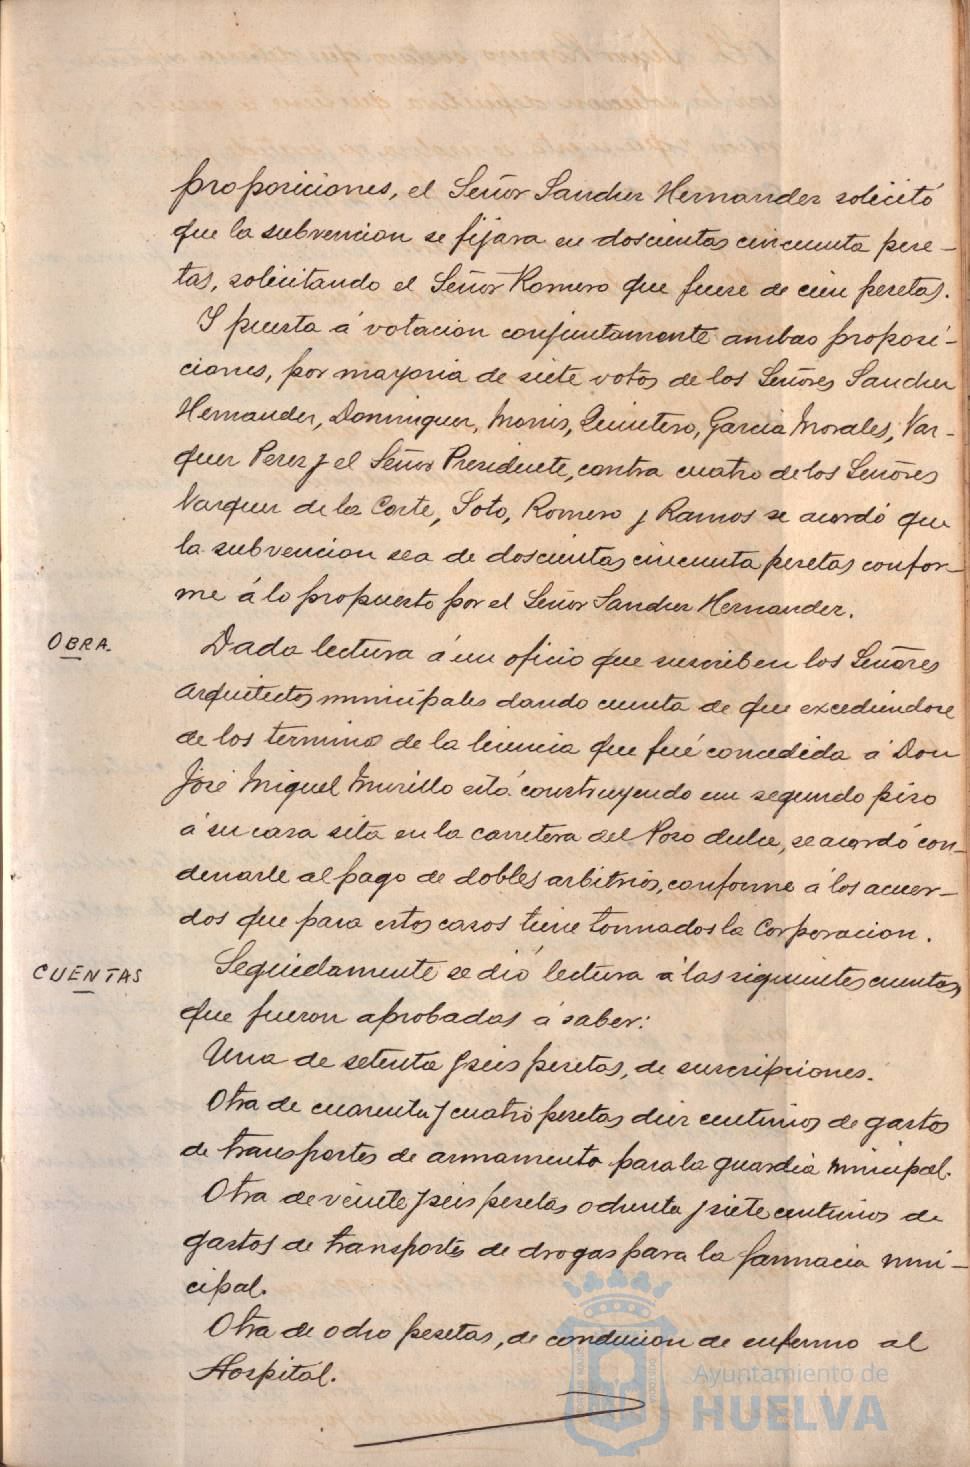 proposiciones, el Señor Sanchez Hernandez solicitó
que la subvencion se fijara en doscientas cincuenta pese-
tas, solicitando el Señor Romero que fuese de cien pesetas.
Y puesta á votacion conjuntamente ambas proposi-
ciones, por mayoria de siete votos de los Señores Sanchez
Hernandez, Dominguez, Morris, Quintero, Garcia Morales, Vaz-
quez Perez y el Señor Presidente, contra cuatro de los Señores
Vazquez de la Corte, Soto, Romero y Ramos se acordó que
la subvencion sea de doscientas cincuenta pesetas confor-
me á lo propuesto por el Señor Sanchez Hernandez.
OBRA.
Dada lectura á un oficio que suscriben los Señores
Arquitectos municipales dando cuenta de que excediendose
de los terminos de la licencia que fué concedida á Don
José Miguel Murillo está construyendo un segundo piso
á su casa sita en la carretera del Pozo dulce, se acordó con-
denarle al pago de dobles arbitrios, conforme á los acuer-
dos que para estos casos tiene tomados la Corporacion.
CUENTAS
Seguidamente se dió lectura á las siguientes cuentas
que fueron aprobadas á saber:
Una de setenta y seis pesetas, de suscripciones.
Otra de cuarenta y cuatro pesetas diez centimos de gastos
de transportes de armamento para la guardia municipal.
Otra de veinte y seis pesetas ochenta y siete centimos de
gastos de transportes de drogas para la farmacia muni-
cipal.
Otra de ocho pesetas, de conduccion de enfermo al
Hospital.
Ayuntamiento de
HUELVA